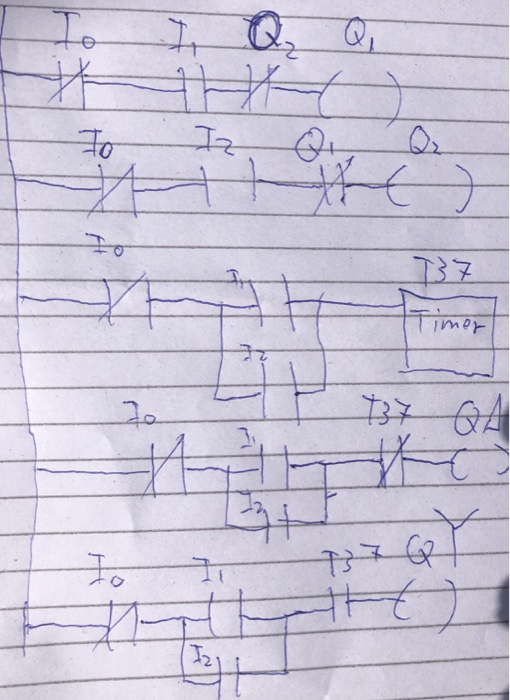 I0 I1 Q2 Q1
I0 I2 Q1 Q2
I0 I1 T37
Timer
I2
I0 I1 T37 QΔ
I2
I0 I1 T37 QY
I2